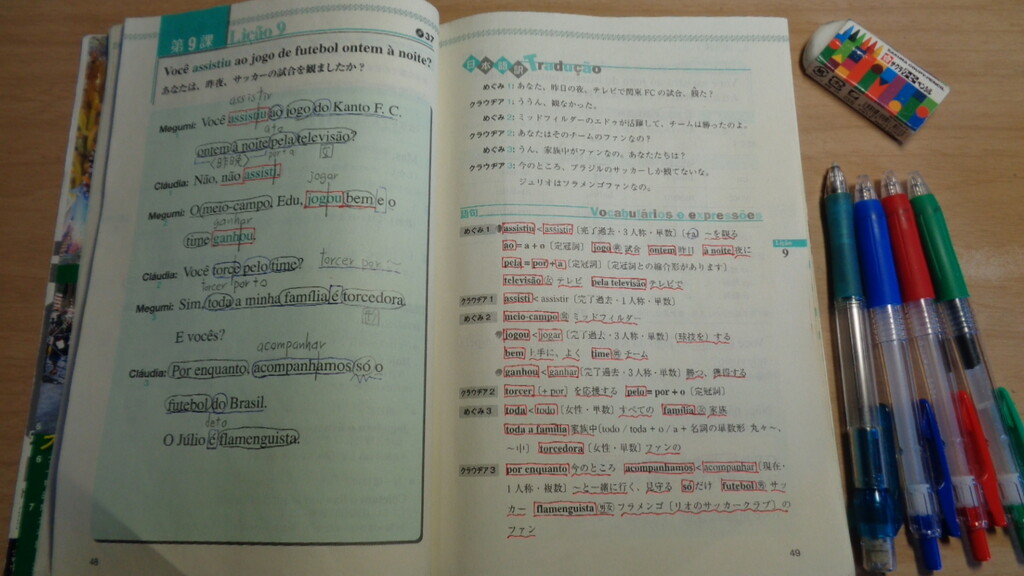 第9課 Lição 9
37
Você assistiu ao jogo de futebol ontem à noite?
あなたは、昨夜、サッカーの試合を観ましたか？
assistir
Megumi: Você assistiu ao jogo do Kanto F. C.
a+o
ontem à noite pela televisão?
por+a
Cláudia: Não, não assisti.
jogar
Megumi: O meio-campo, Edu, jogou bem e o
ganhar
time ganhou.
Cláudia: Você torce pelo time?
torcer por
torcer por+o
Megumi: Sim, toda a minha família é torcedora.
E vocês?
acompanhar
Cláudia: Por enquanto, acompanhamos só o
futebol do Brasil.
de+o
O Júlio é flamenguista.
48
日本語訳 Tradução
めぐみ 1: あなた、昨日の夜、テレビで関東FCの試合、観た？
クラウヂア 1: ううん、観なかった。
めぐみ 2: ミッドフィルダーのエドゥが活躍して、チームは勝ったのよ。
クラウヂア 2: あなたはそのチームのファンなの？
めぐみ 3: うん、家族中がファンなの。あなたたちは？
クラウヂア 3: 今のところ、ブラジルのサッカーしか観てないな。
ジュリオはフラメンゴファンなの。
語句 Vocabulários e expressões
めぐみ 1 assistiu < assistir〔完了過去・3人称・単数〕(+a) ～を観る
ao = a + o〔定冠詞〕 jogo 男 試合 ontem 昨日 à noite 夜に
pela = por + a〔定冠詞〕〔定冠詞との縮合形があります〕
televisão 女 テレビ pela televisão テレビで
クラウヂア 1 assisti < assistir〔完了過去・1人称・単数〕
めぐみ 2 meio-campo 男 ミッドフィルダー
jogou < jogar〔完了過去・3人称・単数〕(球技を) する
bem 上手に、よく time 男 チーム
ganhou < ganhar〔完了過去・3人称・単数〕勝つ、獲得する
クラウヂア 2 torcer〔+ por〕を応援する pelo = por + o〔定冠詞〕
めぐみ 3 toda < todo〔女性・単数〕すべての família 女 家族
toda a família 家族中 (todo / toda + o / a + 名詞の単数形 丸々～、
～中) torcedora〔女性・単数〕ファンの
クラウヂア 3 por enquanto 今のところ acompanhamos < acompanhar〔現在・
1人称・複数〕～と一緒に行く、見守る só だけ futebol 男 サッ
カー flamenguista 男女 フラメンゴ〔リオのサッカークラブ〕の
ファン
Lição
9
49